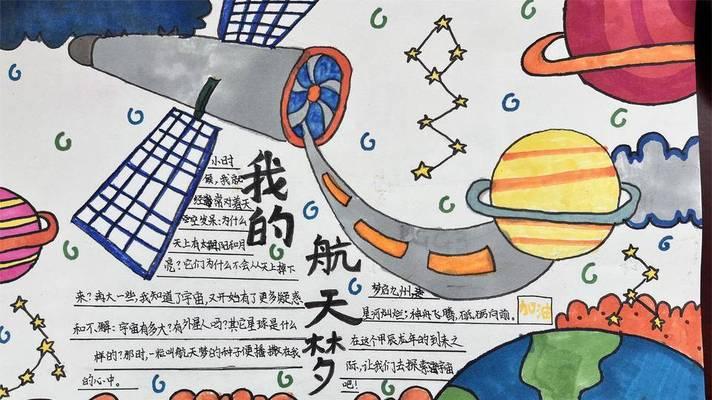 我的
航天梦
小时
候，我就
经常对着天
空发呆：为什么
天上有太阳和月
亮？它们为什么不会从天上掉下
来？再大一些，我知道了宇宙，又开始有了更多疑惑
和不解：宇宙有多大？有外星人吗？其它星球是什么
样的？那时，一粒叫航天梦的种子便播撒在我
的心中。
梦启九州，
星河灿烂；神舟飞腾，砥砺向前。
在这个甲辰龙年的到来之
际，让我们去探索宇宙
吧！
加油